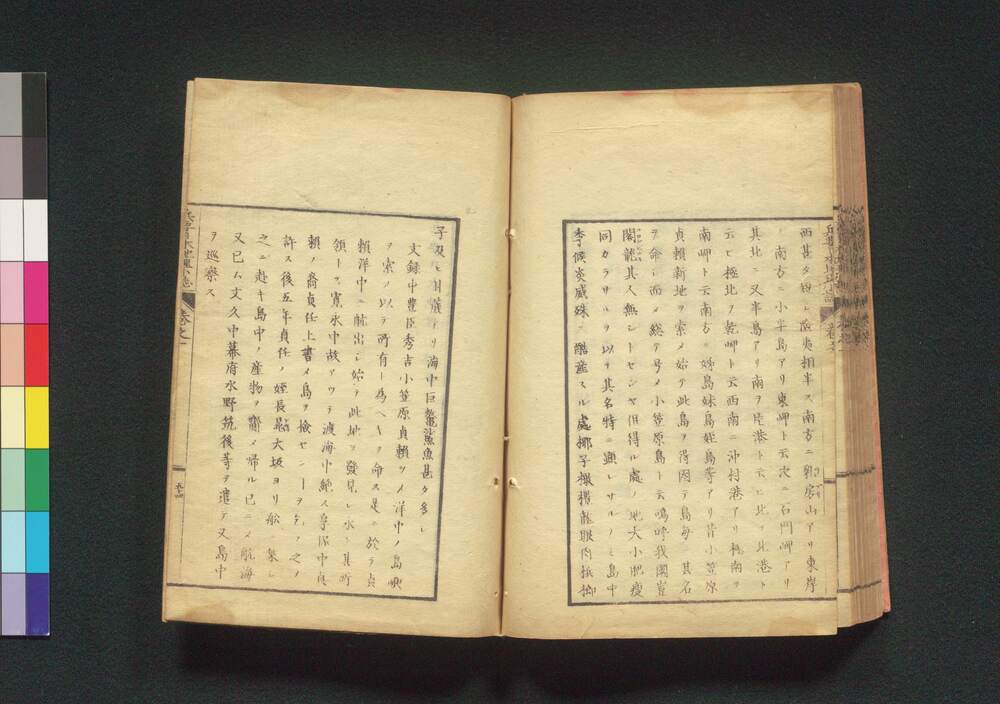 西甚タ狹シ 險夷相半ス南方ニ乳房山アリ東岸
ノ南方ニ小半島アリ東岬ト云次ニ石門岬アリ
其北ニ又半島アリ南ヲ片港ト云ヒ北ヲ北港ト
云ヒ極北ヲ乾岬ト云西南ニ沖村港アリ極南ヲ
南岬ト云南方ニ姊島妹島姪島等アリ昔小笠原
貞賴新地ヲ索メ始テ此島ヲ得因テ島每ニ其名
ヲ命シ而メ總テ號メ小笠原島ト云嗚呼我國豈
閣龍其人無シトセンヤ但得ル處ノ地大小肥瘦
同カラサルヲ以テ其名特ニ興レサルノミ島中
季候炎威殊ニ酷 產スル處椰子橄欖龍眼肉
子 アリ海中巨鼇鯊魚甚タ多シ
文錄中豊臣秀吉小笠原貞賴ヲメ洋中ノ島嶼
ヲ索ノ以テ所有ト為ヘキヲ命ス是ニ於テ貞
賴洋中ニ航出シ始テ此地ヲ發見シ永ク其所
領トス寬永中故アツテ渡海中絕ス享保中貞
賴ノ裔貞任上書メ島ヲ檢セントヲ乞フ之ヲ
許ス後五年貞任ノ姪長晁大坂ヨリ船ニ乘シ
之ニ赴キ島中ノ產物ヲ齎メ歸ル已ニメ航海
又已ム文久中幕府水野筑後等ヲ遣テ又島中
ヲ巡察ス
卷之一